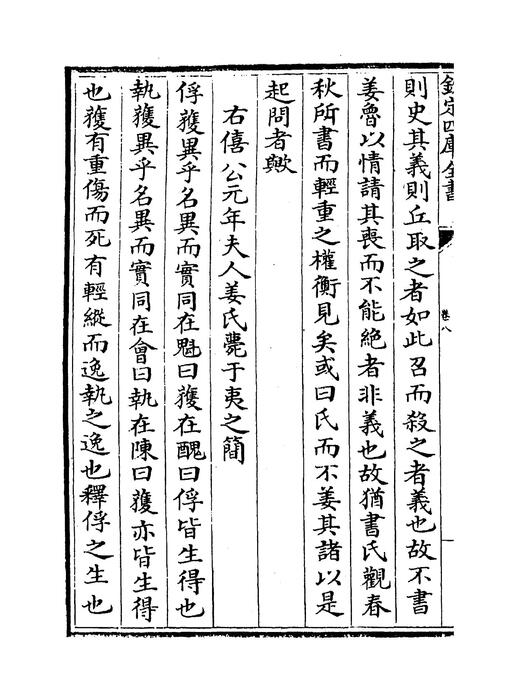 欽定四庫全書
卷八
則史其義則丘取之者如此召而殺之者義也故不書
姜魯以情請其喪而不能絶者非義也故猶書氏觀春
秋所書而輕重之權衡見矣或曰氏而不姜其諸以是
起問者歟
右僖公元年夫人姜氏薨于夷之簡
俘獲異乎名異而實同在魁曰獲在醜曰俘皆生得也
執獲異乎名異而實同在會曰執在陳曰獲亦皆生得
也獲有重傷而死有輕縱而逸執之逸也釋俘之生也